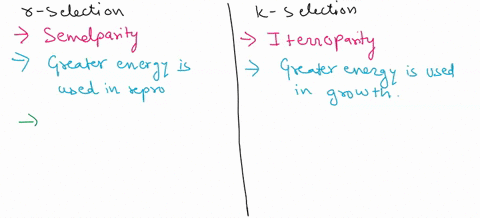 r-selection
→ Semelparity
→ Greater energy is
used in repro
→
K-Selection
→ Iteroparity
→ Greater energy is used
in growth.